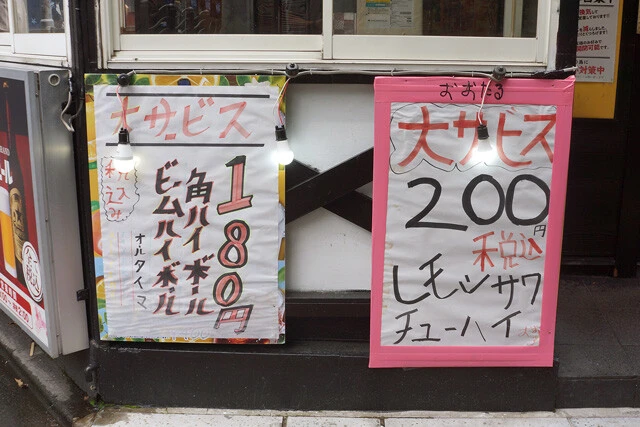 大サビス
税込み
180円
角ハイボール
ビームハイボール
オルタイマ
おおだる
大サビス
200円
税込
レモンサワ
チューハイ
対策中